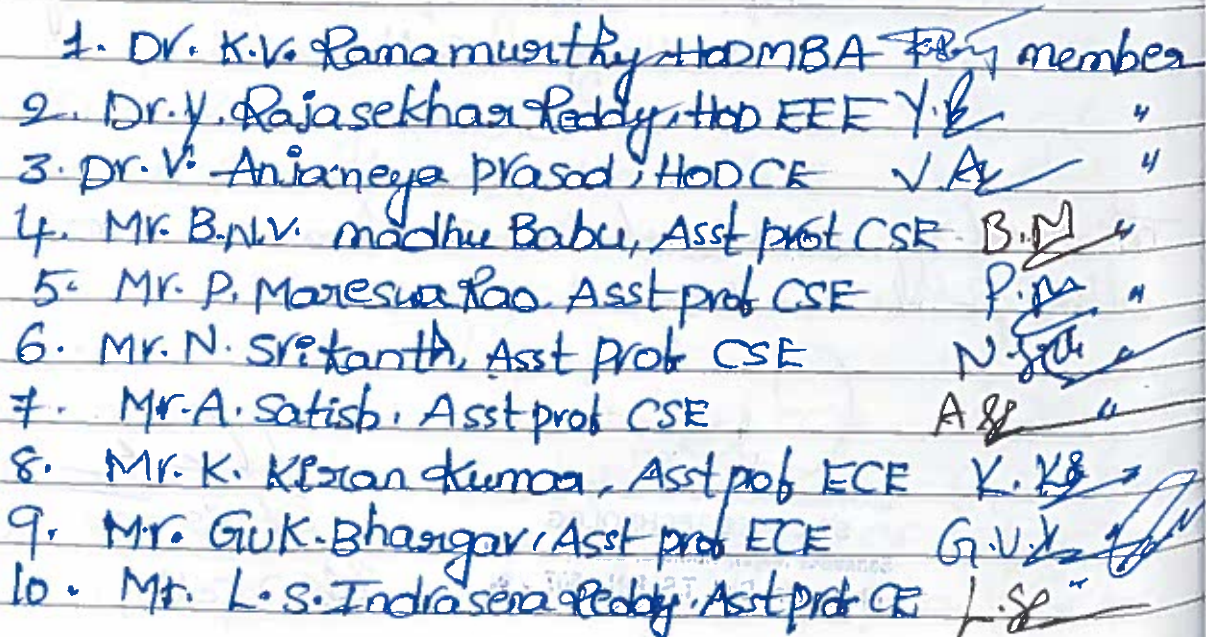 1. Dr. K.V. Ramamurthy HODMBA member
2. Dr. Y. Rajasekhar Reddy, HOD EEE Y.R "
3. Dr. V. Anjaneya prasad, HOD CE V.A "
4. Mr. B.N.V. madhu Babu, Asst prof CSE B.N "
5. Mr. P. Mareswa Rao. Asst prof CSE P.M "
6. Mr. N. Srikanth, Asst prof CSE N. "
7. Mr. A. Satish. Asst prof CSE A "
8. Mr. K. Kiran Kumar, Asst prof ECE K. "
9. Mr. GVK. Bhargav, Asst prof ECE G.V.K "
10. Mr. L.S. Indrasena Reddy. Asst prof CE L.S "